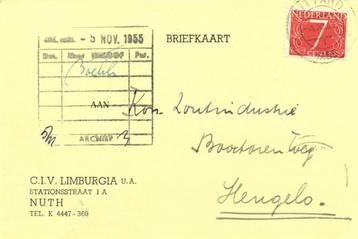 - 5 NOV. 1955
BRIEFKAART
NEDERLAND
7
CENT
Par.
AAN
Kon. Zoutindustrie
Boortorenweg
ARCHIEF
Hengelo.
C.I.V. LIMBURGIA U.A.
STATIONSSTRAAT 1 A
NUTH
TEL. K 4447-369